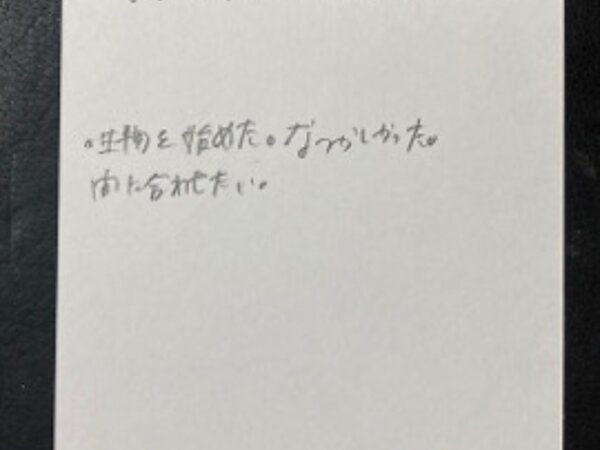 ・生物を始めた。なつかしかった。
間に合わせたい。